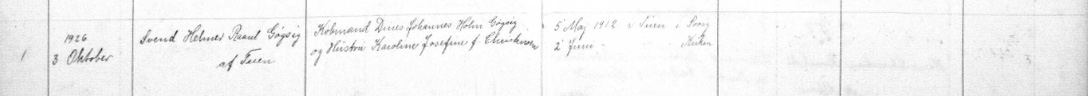 1
1926
3 Oktober
Svend Helmer Raaul Gøjsig
af Tuen
Købmand Dines Johannes Holm Gøjsig
og Hustru Karoline Josefine f. Christensen
5 Maj 1912 i Tuen i
2 Juni
Kirken